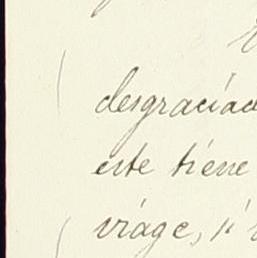 desgraciad
este tiene
viage, si